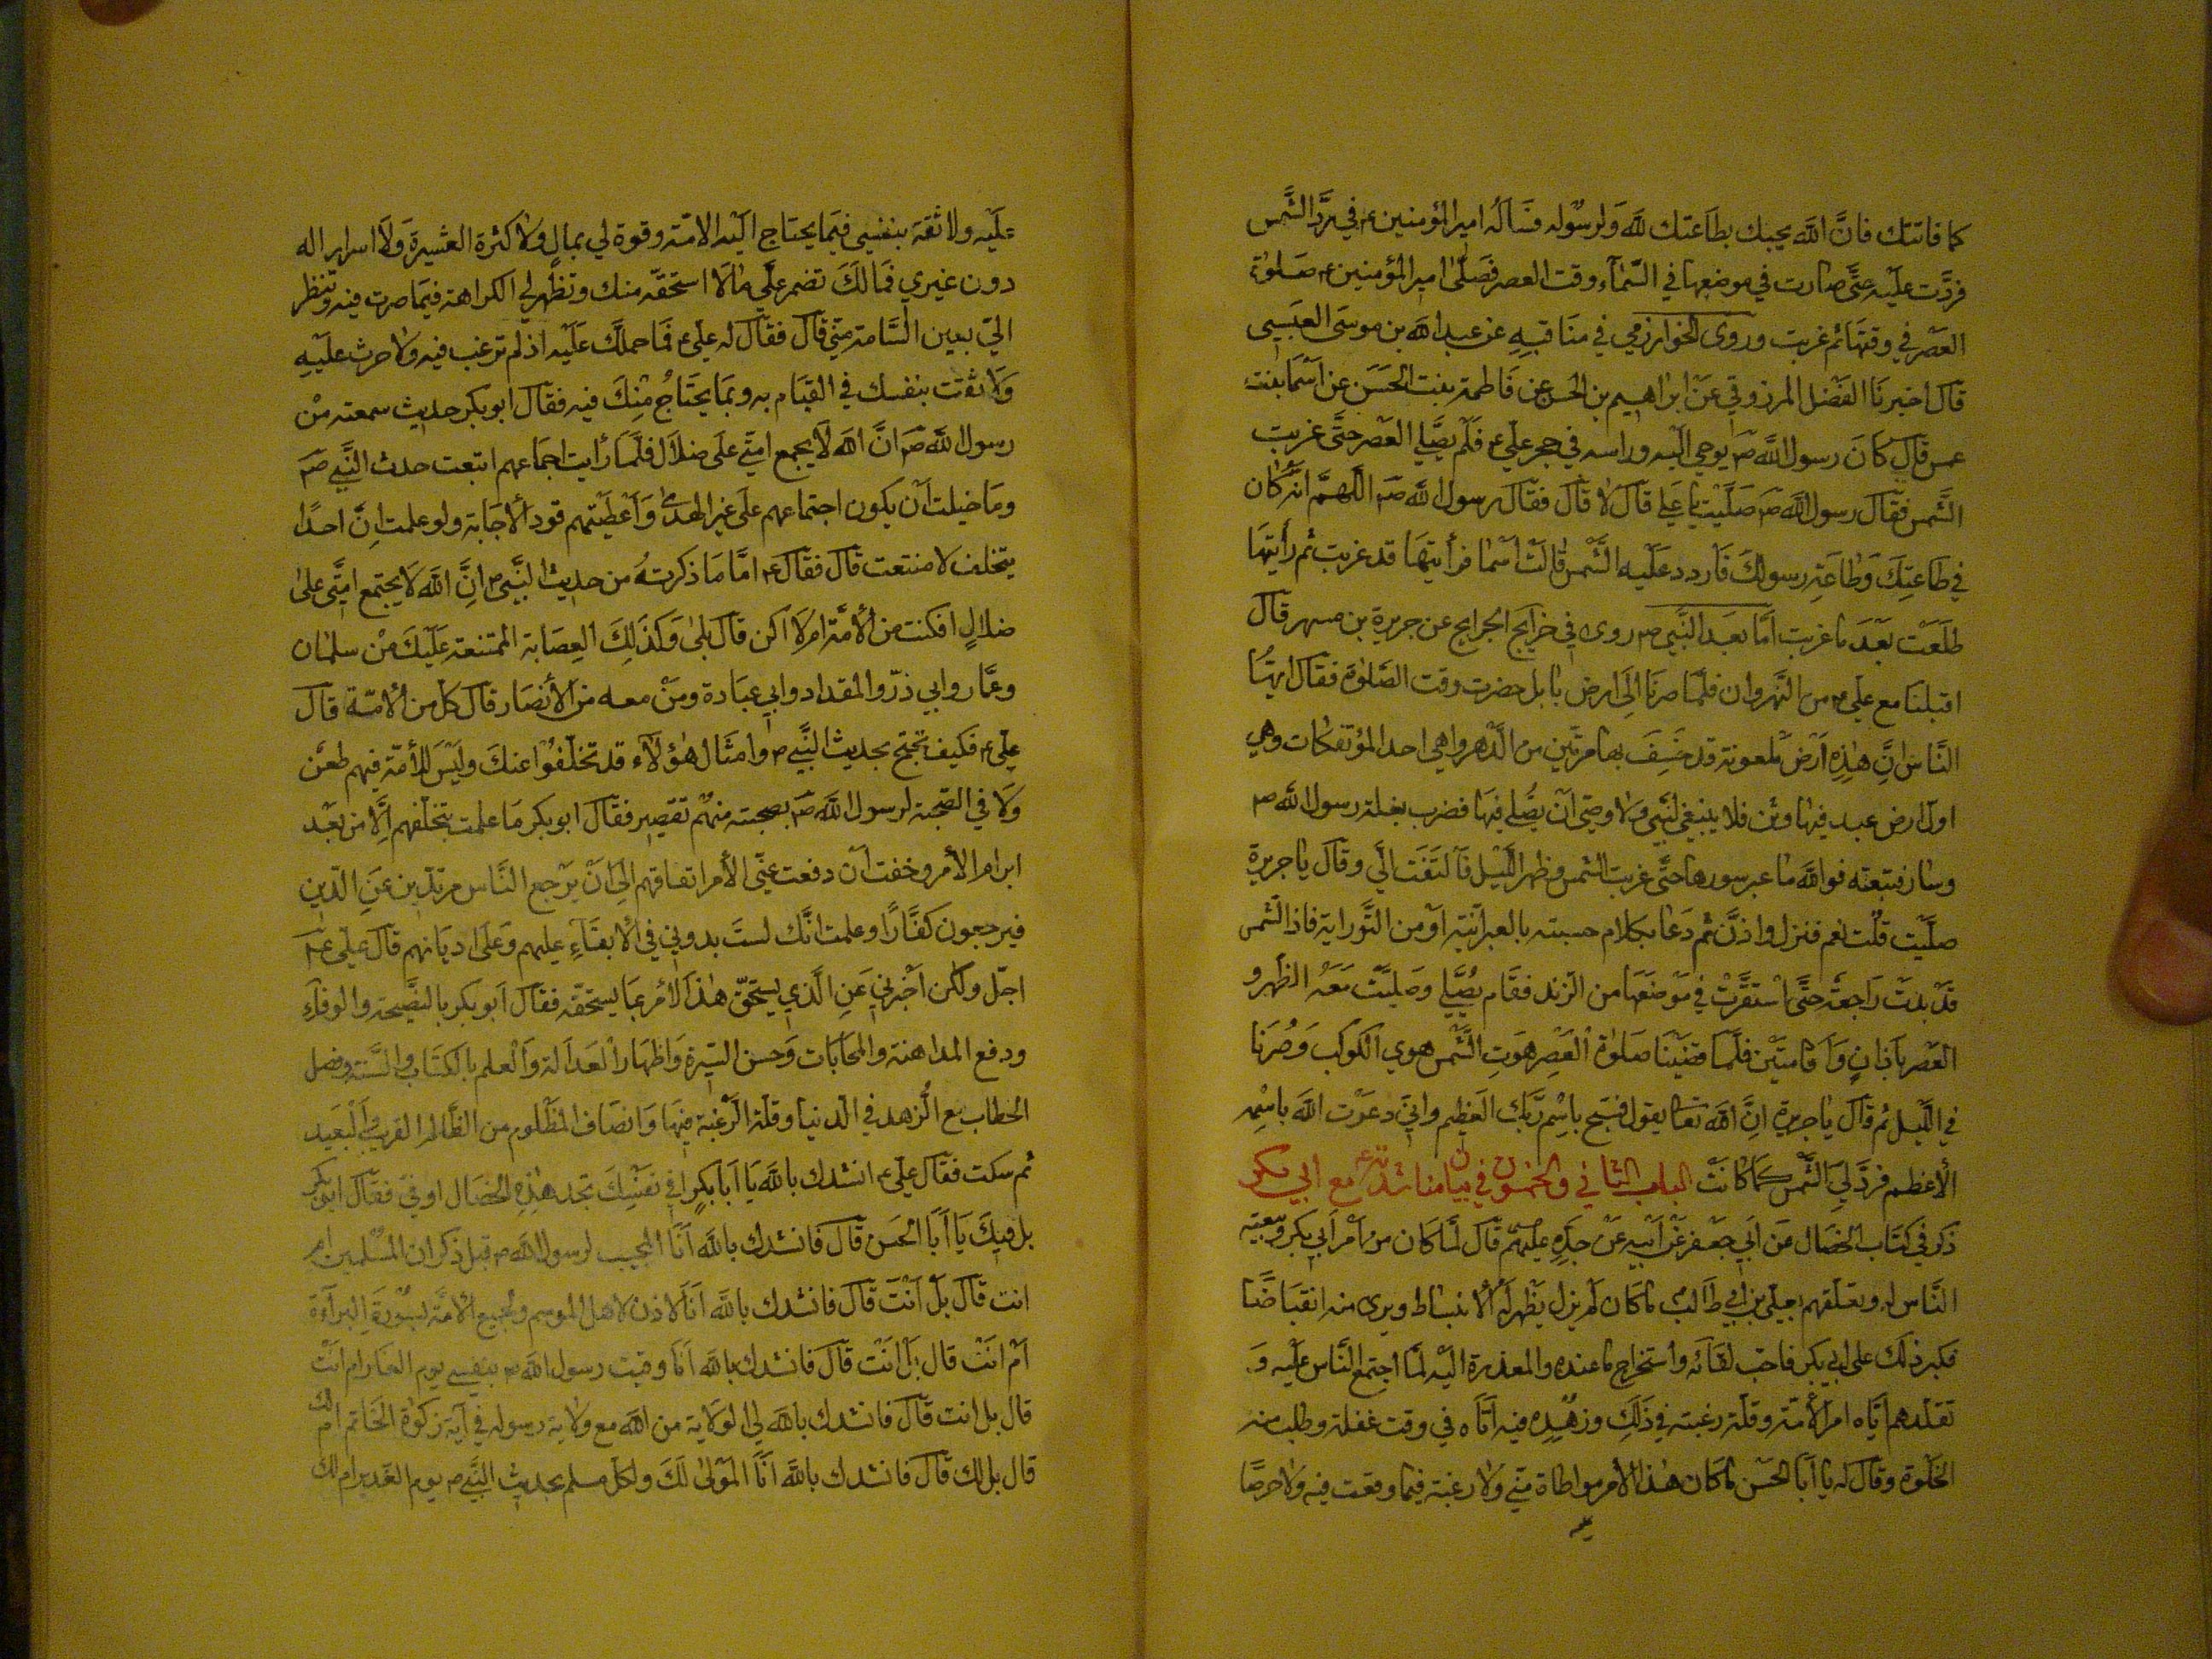 كما فاتتك فانَّ الله يجيبك بطاعتك لله ولرسوله فسأله اميرالمؤمنين ع في ردّ الشَّمس
فردَّت عليه حتَّى صارت في موضعها في السَّماء وقت العصر فصلّى اميرالمؤمنين ع صلوة
العصر في وقتها ثم غربت وروى الخوارزمي في مناقبه عن عبدالله بن موسى العبسي
قال اخبرنا الفضل المرزوقي عن ابراهيم بن الحسن عن فاطمة بنت الحسن عن اسما بنت
عمس قال كان رسول الله ص يوحي اليه وراسه في حجر علي ع فلم يصلي العصر حتَّى غربت
الشَّمس فقال رسول الله ص صلّيت يا علي قال لا قال فقال رسول الله ص اللّهمّ انّه كان
في طاعتك وطاعة رسولك فاردد عليه الشَّمس قالت اسما فرأيتها قد غربت ثم رأيتها
طلعت بعد ما غربت امّا بعد النّبي ص روى في خرايج الجرايج عن جريرة بن مسهر قال
اقبلنا مع علي ع من النّهروان فلمّا صرنا الى ارض بابل حضرت وقت الصّلوة فقال ايّها
النّاس انّ هذه ارض ملعونة قد خسف بها مرّتين من الدّهر وهي احد المؤتفكات وهي
اول ارض عبد فيها وثن فلا ينبغي لنبّي ولا وصيّ ان يصلّي فيها فضرب بغلة رسول الله ص
وسار فتبعته فوالله ما عبر سورها حتّى غربت الشمس وظهر اللّيل فالتفت اليّ وقال يا جريرة
صلّيت قلت نعم فنزل واذّن ثم دعا بكلام حسبته بالعبرانيّة او من التّوراية فاذا الشّمس
قد بدت راجعة حتّى استقرّت في موضعها من الزند فقام يصلّي وصلّيت معه الظهر و
العصر باذان واقامتين فلمّا قضينا صلوة العصر هوت الشّمس هوي الكوكب وصرنا
في اللّيل ثم قال يا جريرة انّ الله تعا يقول فسبح باسم ربّك العظيم وانّي دعوت الله باسمه
الأعظم فردّ لي الشّمس كما كانت الباب الثاني والخمسون في بيا مناشدته ع مع ابي بكر
ذكر في كتاب الخصال عن ابي جعفر عن ابيه عن جدّه عليهم قال لمّا كان من امر ابي بكر وبيعته
النّاس له وبعلّقهم بعلي بن ابي طالب ما كان لم يزل يظهر له الانبساط ويرى منه انقباضًا
فكبر ذلك على ابي بكر فاحبّ لقائه واستخراج ما عنده والمعذرة اليه لمّا اجتمع النّاس عليه و
تقلدهم ايّاه امر الأمّة وقلّة رغبته في ذلك وزهده فيه اتاه في وقت غفلة وطلب منه
الخلوة وقال له يا ابا الحسن ما كان هذا الأمر مواطاة منّي ولا رغبة فيما وقعت فيه ولا حرصًا
عليه ولا ثقة بنفسي فيما يحتاج اليه الامّة وقوة لي بمال ولا كثرة العشيرة ولا اسرار اله
دون غيري فمالك تضمر عليّ مالا استحقّه منك وتظهر لي الكراهة فيما صرت فيه وتنظر
اليّ بعين السّامة منّي قال فقال له علي ع فما حملك عليه اذ لم ترغب فيه ولا حرث عليه
ولا ثقت بنفسك في القيام به وبما يحتاج منك فيه فقال ابوبكر حديث سمعته من
رسول الله ص انّ الله لا يجمع امتّي على ضلال فلمّا رأيت اجماعهم اتبعت حدث النّبي ص
وما خيلت ان يكون اجتماعهم على غير الهدى واعطيتهم قود الأجابة ولو علمت انّ احدًا
يتخلف لامتنعت قال فقال ع امّا ما ذكرته من حديث النّبي ص انّ الله لا يجتمع امتّي على
ضلال افكنت من الأمّة ام لا اكن قال بلى وكذلك العصابة الممتنعة عليك من سلمان
وعمّار وابي ذرّ والمقداد وابي عبادة ومن معه من الأنصار قال كل من الأمّة قال
علي ع فكيف تحتج بحديث النّبي ص وامثال هؤلاء قد تخلّفوا عنك وليس للأمّة فيهم طعن
ولا في الصّحبة لرسول الله ص بصحبته منهم تقصير فقال ابوبكر ما علمت بتخلفهم الّا من بعد
ابرام الأمر وخفت ان دفعت عنّي الأمر اتفاقهم الى ان يرجع النّاس مرتدّين عن الدّين
فيرجعون كفّارًا وعلمت انّك لست بدوني في الأبقاء عليهم وعلى اديانهم قال علي ع
اجل ولكن اخبرني عن الّذي يستحقّ هذا الأمر بما يستحقّه فقال ابوبكر بالنّصيحة والوفاء
ودفع المداهنة والمحابات وحسن السّيرة واظهار العدالة والعلم بالكتاب والسّنّة وفضل
الخطاب مع الزّهد في الدّنيا وقلّة الرّغبة فيها وانصاف المظلوم من الظّالم القريب والبعيد
ثم سكت فقال علي ع انشدك بالله يا ابابكر افي نفسك تجد هذه الخصال او فيّ فقال ابوبكر
بل فيك يا ابا الحسن قال فانشدك بالله انا المجيب لرسول الله ص قبل ذكران المسلمين ام
انت قال بل انت قال فانشدك بالله انا لاذن لاهل الموسم ولجميع الامّة بسورة البراءة
ام انت قال بل انت قال فانشدك بالله انا وقيت رسول الله ص بنفسي يوم الغار ام انت
قال بل انت قال فانشدك بالله لي الولاية من الله مع ولاية رسوله في آية زكوة الخاتم ام لك
قال بل لك قال فانشدك بالله انا المولى لك ولكل مسلم بحديث النّبي ص يوم الغدير ام لك